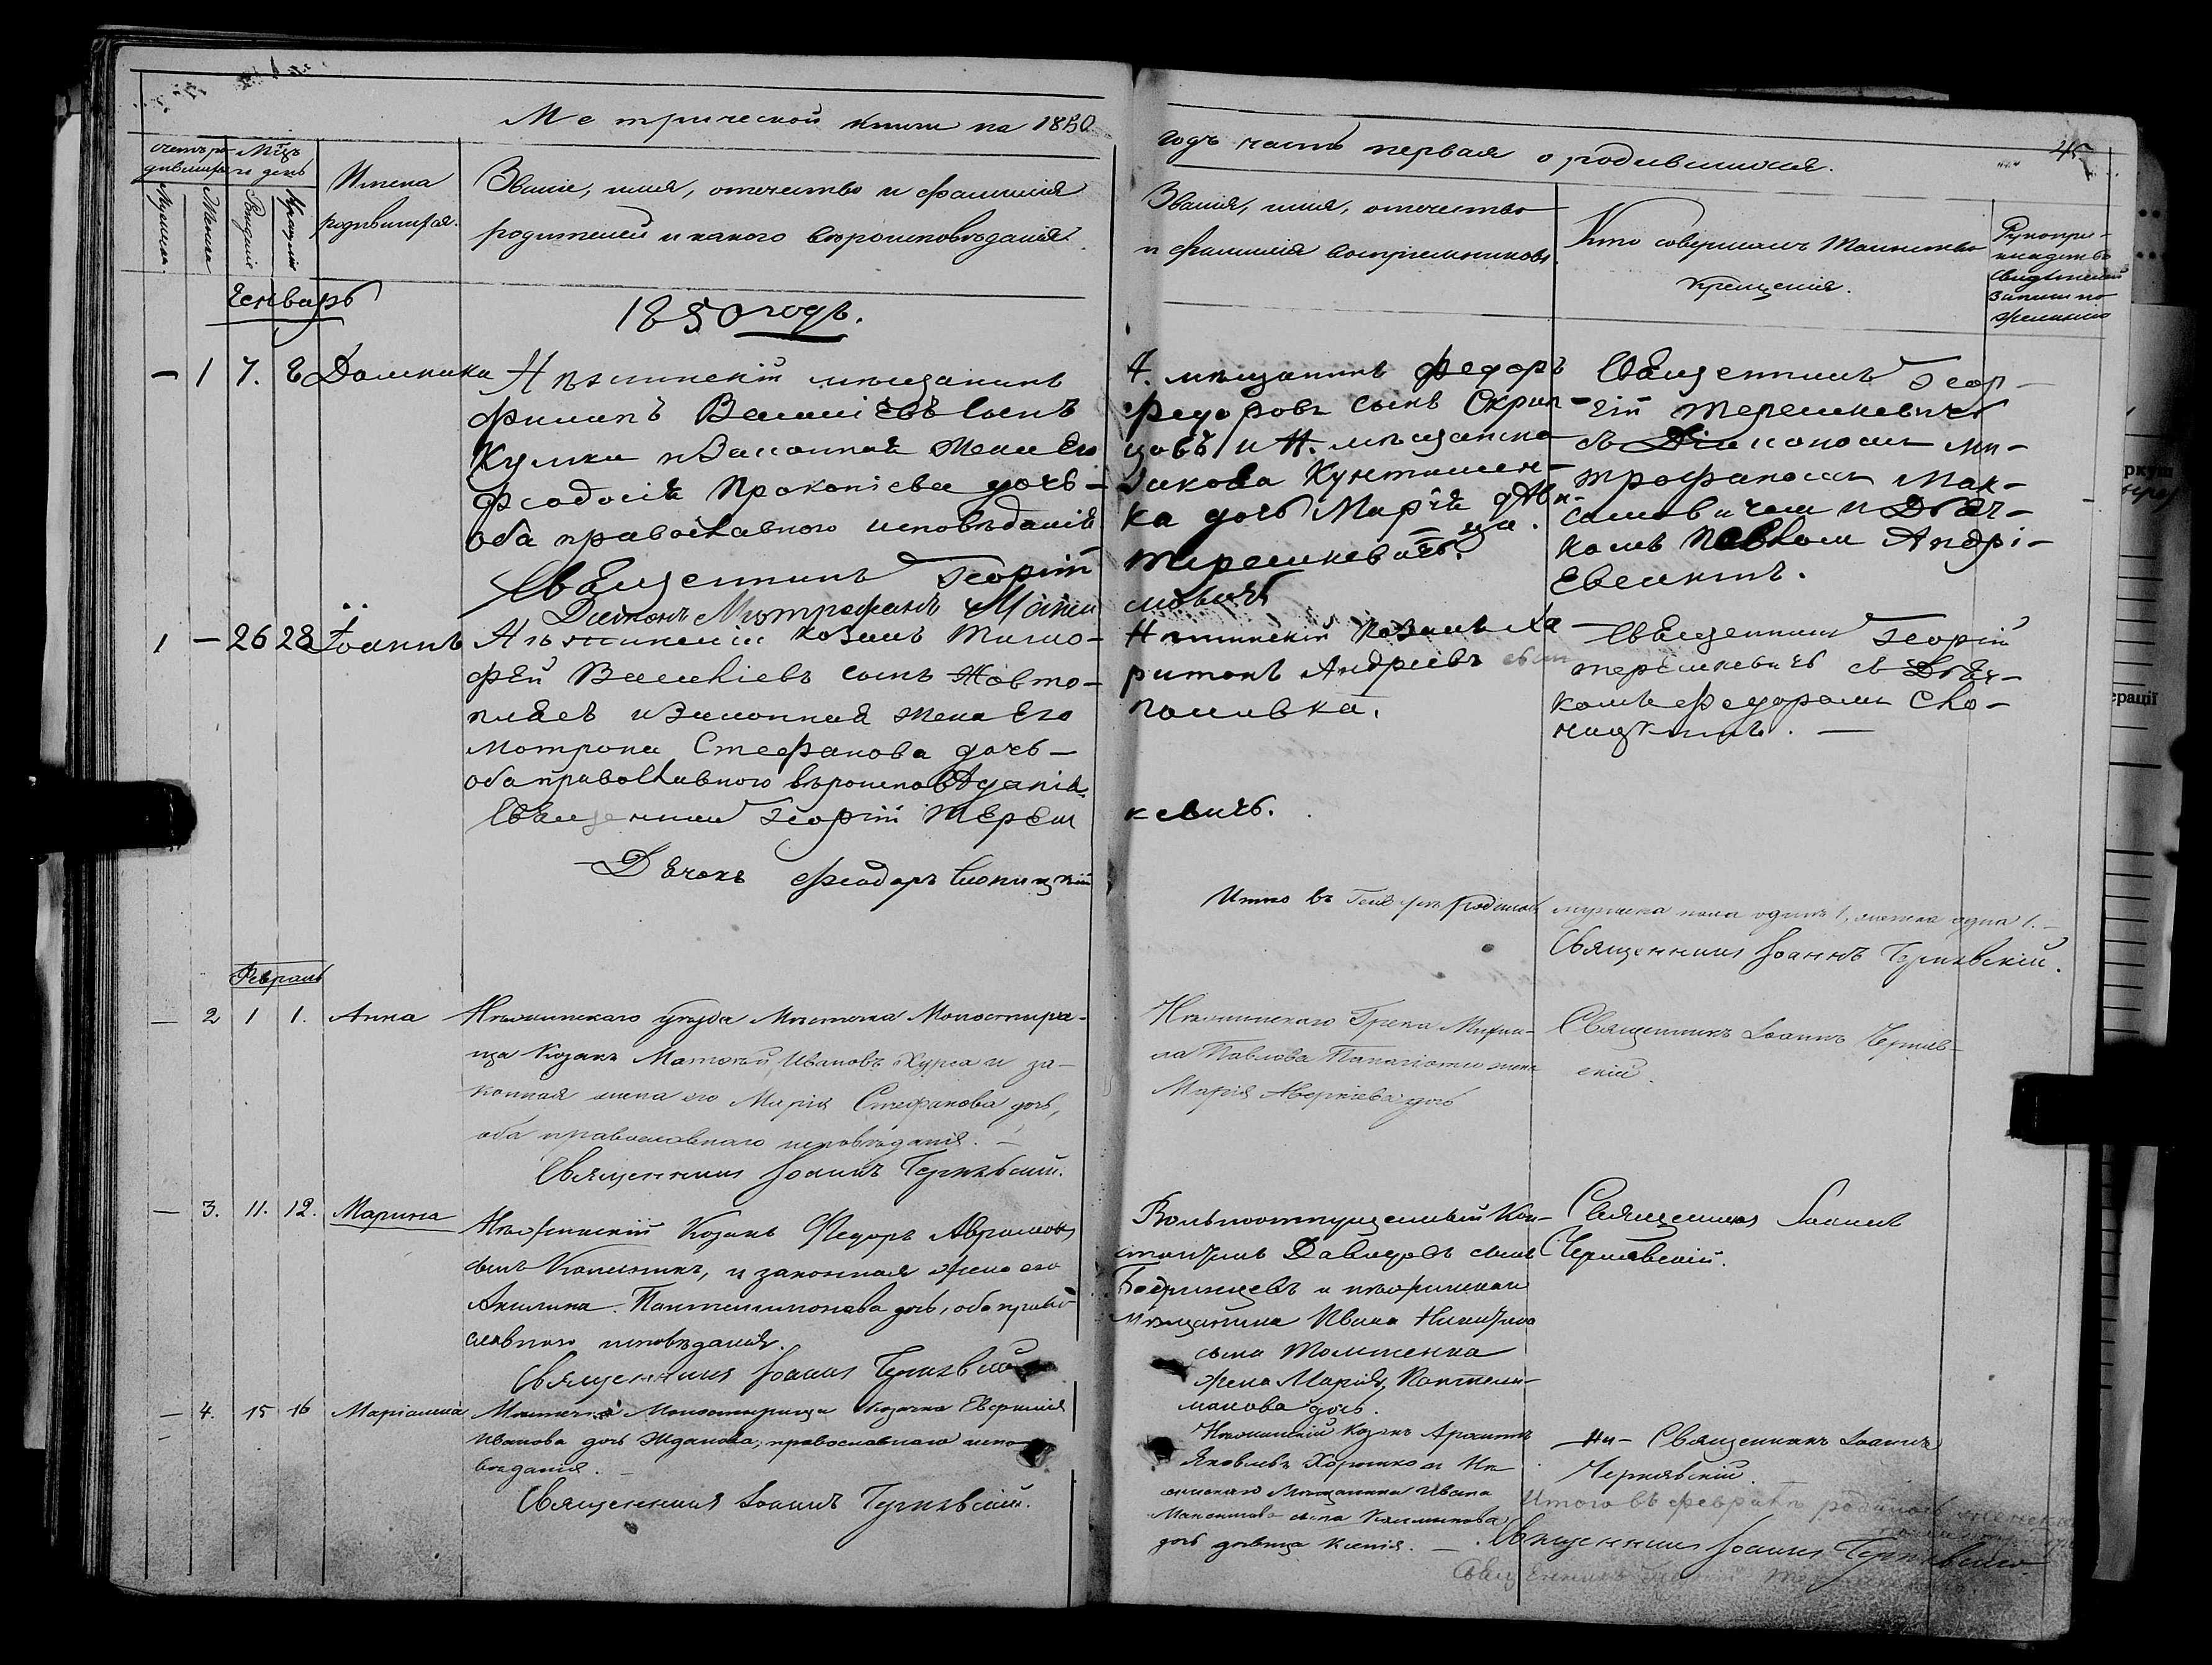 Метрической книги на 1850
годъ часть первая о родившихся.
45
Счетъ ро-
дившихся
Мцъ
и день
Мужеска.
Женска
Рожденія
Крещенія
Имена
родившихся.
Званіе, имя, отчество и фамилія
родителей и какого вѣроисповѣданія.
Званія, имя, отчество
и фамилія воспріемниковъ.
Кто совершалъ таинство
крещенія.
Рукопри-
кладство
свидѣтелей
записи по
желанію
Генварь
1850 годъ.
— 1 7. 8 Домникія
Нѣжинскій мѣщанинъ
Филипъ Василіевъ сынъ
Кулика и законная жена его
Феодосія Прокопіева дочь —
оба православного исповѣданія
Священникъ Георгій
Діаконъ Митрофанъ Макси
Н. мѣщанинъ Федоръ
Федоровъ сынъ Скрип-
цовъ и Н. мѣщанина
Якова
ка дочь Марія дѣви-
ца.
Терешкевичъ.
мовичъ
Священникъ Геор-
гій Терешкевичъ
съ Діакономъ Ми-
трофаномъ Мак-
симовичемъ и Дьяч-
комъ Павломъ Андрі-
евскимъ.
1 — 26 28 Іоаннъ
Нѣжинскій козакъ Тимо-
фей Василіевъ сынъ Жовто-
плясъ и законная жена его
Мотрона Стефанова дочь —
оба православного вѣроисповѣданія.
Священникъ Георгій Тереш
Дячокъ Феодоръ Слоницкій
Нѣжинскій козакъ Ха-
ритонъ Андреевъ сынъ
Паливка.
кевичъ.
Священникъ Георгій
Терешкевичъ съ Дьяч-
комъ Федоромъ Сло-
ницкимъ. —
Итого въ Генварѣ родилось
мужеска пола одинъ 1, женска одна 1. —
Священникъ Іоаннъ Чернявскій.
Февраль
— 2 1 1. Анна
Нѣжинскаго уѣзда Мѣстечка Моностыри-
ща Козакъ Матвѣй Ивановъ Курса и за-
конная жена его Марія Стефанова дочь,
оба православнаго исповѣданія. —
Священникъ Іоаннъ Чернявскій.
Нѣжинскаго Грека Михаи-
ла Павлова жена
Марія Аверкіева дочь
Священникъ Іоаннъ Черняв-
скій.
— 3. 11. 12. Марина
Нѣжинскій Козакъ Федоръ Аврамовъ
сынъ и законная жена его
Акилина Пантелимонова дочь, оба право-
славного исповѣданія.
Священникъ Іоаннъ Чернявскій
Вольноотпущенный Кон-
стантинъ Давидовъ сынъ
и нѣжинскаго
Мѣщанина Ивана Никитина
сына
жена Марія Пантели-
монова дочь.
Священникъ Іоаннъ
Чернявскій.
— 4. 15 16 Маріамна
Мѣстечка Моностырища козачка Евфимія
Иванова дочь Жданова, православнаго испо-
вѣданія. —
Священникъ Іоаннъ Чернявскій.
Нѣжинскій козакъ Архипъ
Яковлевъ и Нѣ-
жинскаго Мѣщанина Ивана
Максимова сына
дочь дѣвица Ксенія. —
Священникъ Іоаннъ
Чернявскій.
Итого въ февралѣ родилось женска
Священникъ Іоаннъ Чернявскій
Священникъ Георгій Терешкевичъ.